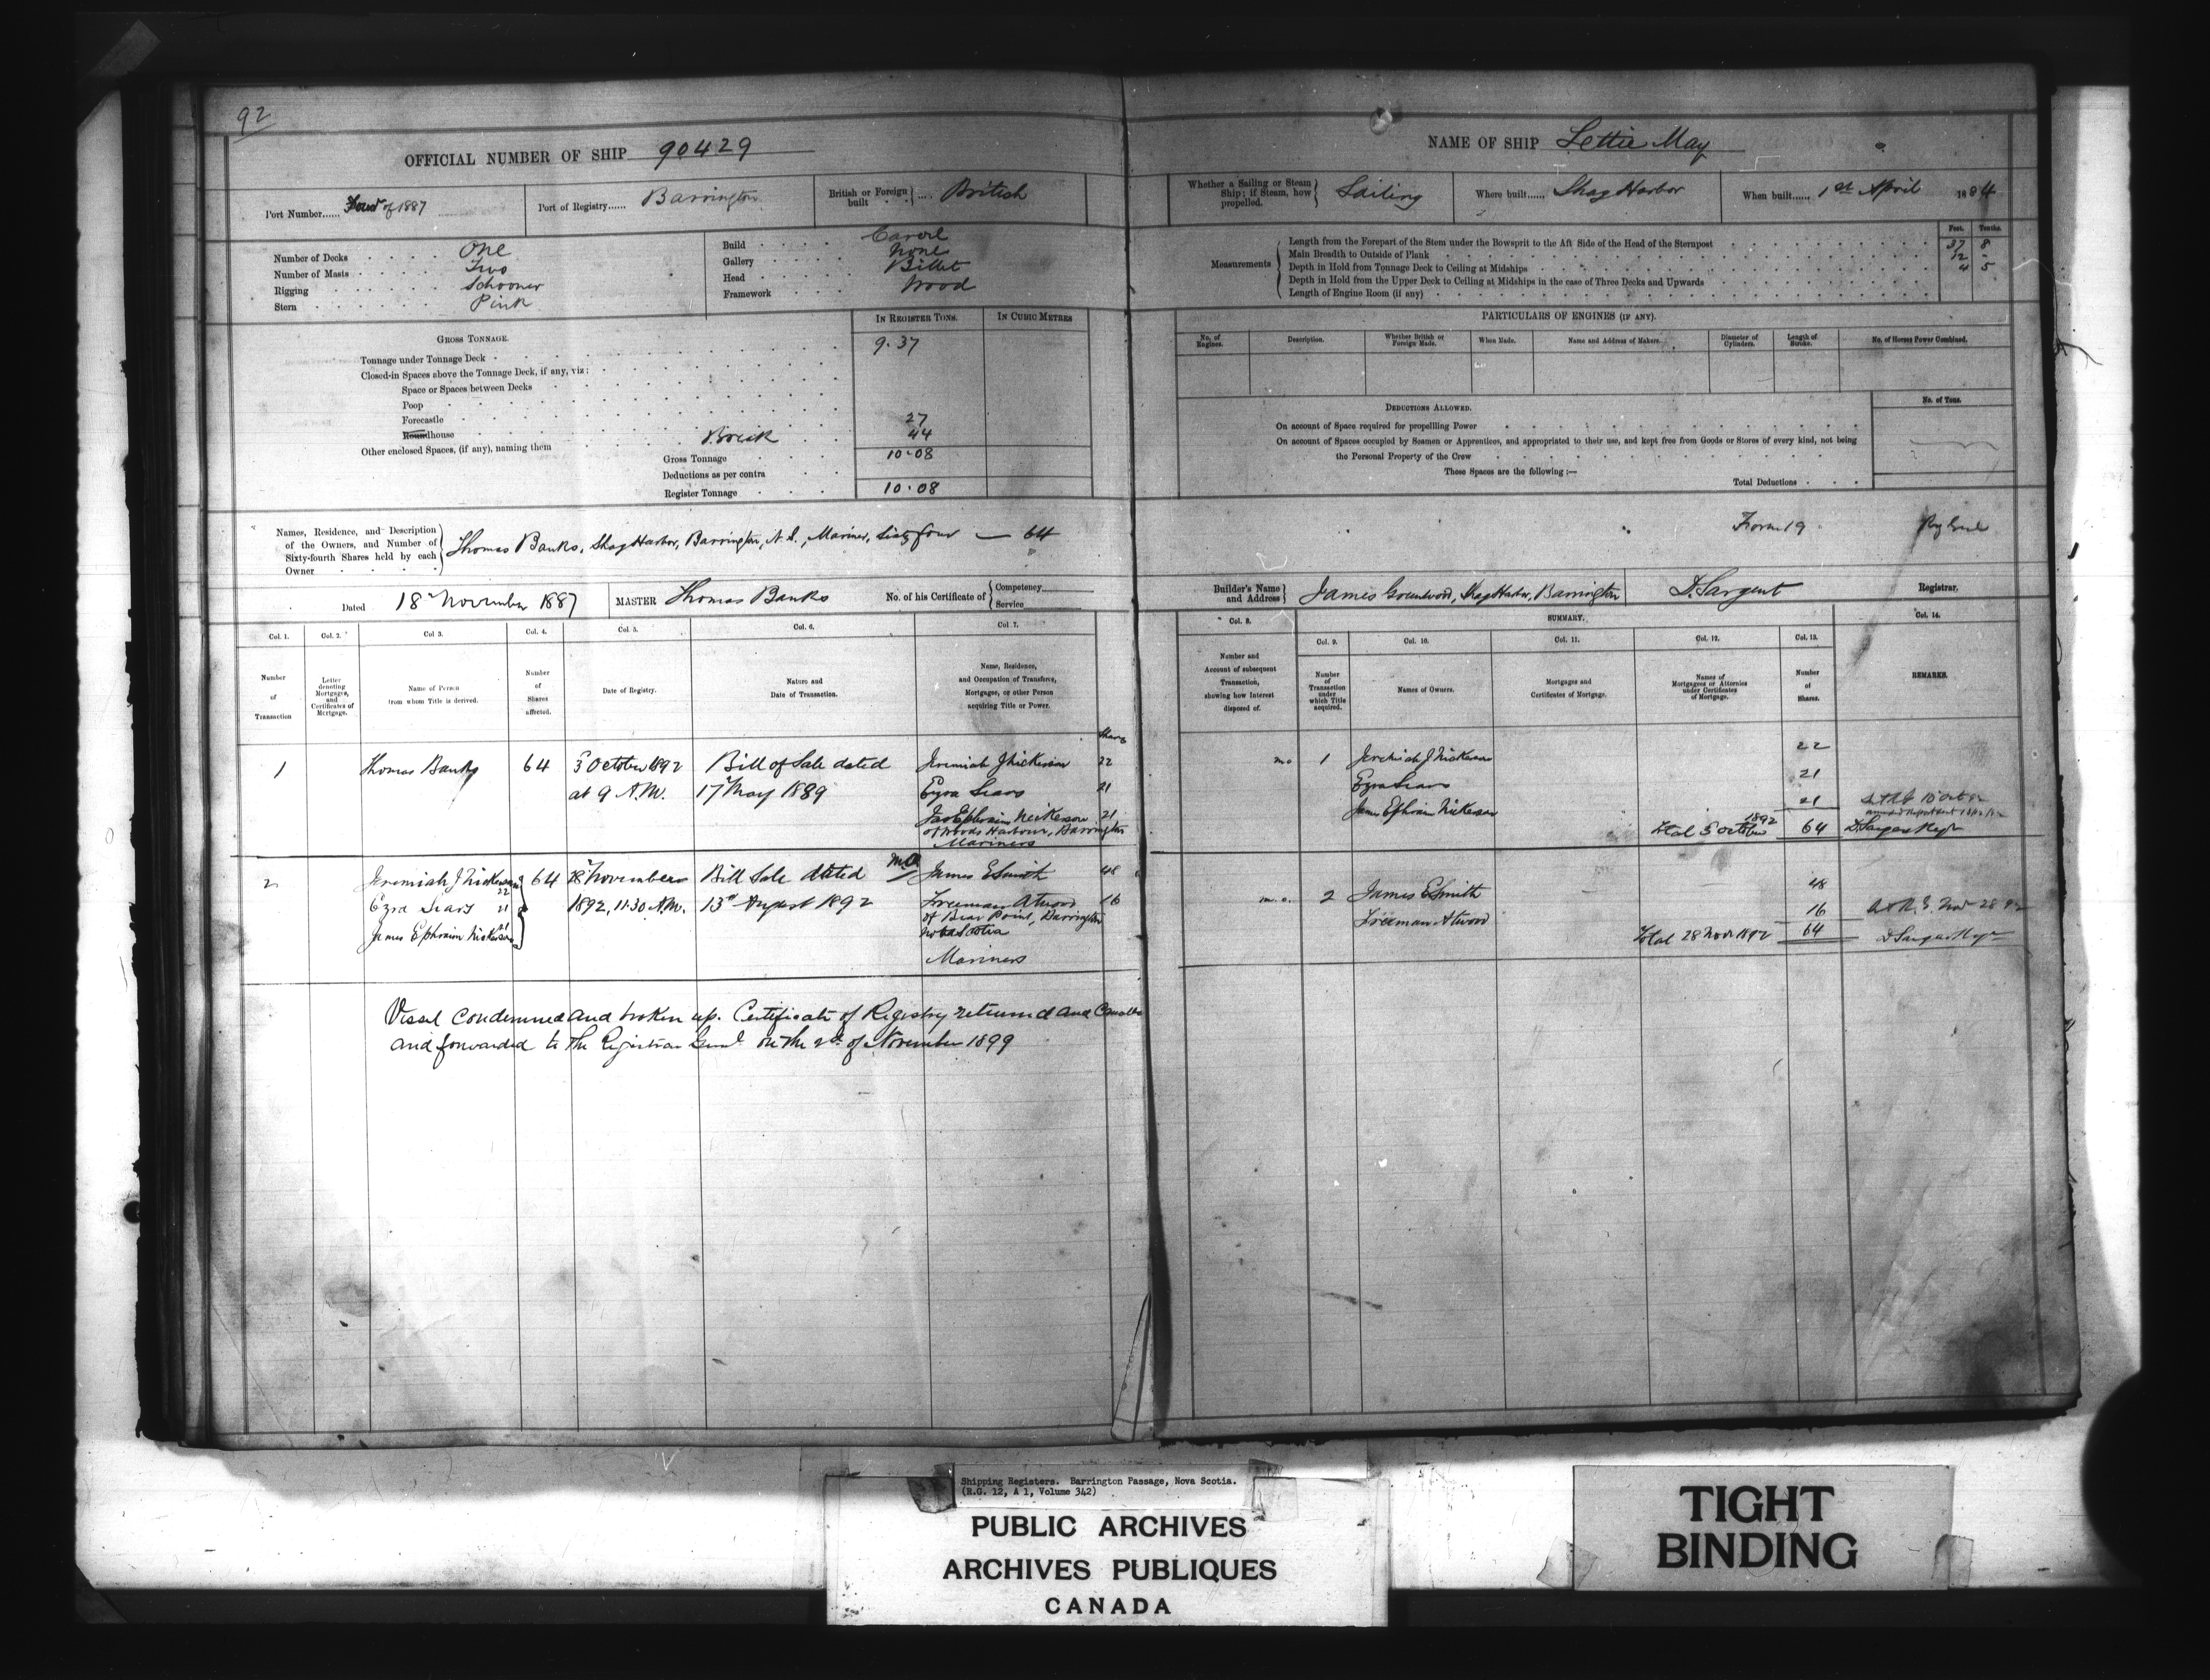 92
OFFICIAL NUMBER OF SHIP 90429
Port Number...... Four of 1887
Port of Registry...... Barrington
British or Foreign built .... British
Number of Decks One
Number of Masts Two
Rigging Schooner
Stern Pink
Build Carvel
Gallery None
Head Billet
Framework Wood
IN REGISTER TONS.
IN CUBIC METRES
GROSS TONNAGE.
Tonnage under Tonnage Deck 9.37
Closed-in Spaces above the Tonnage Deck, if any, viz:
Space or Spaces between Decks
Poop
Forecastle 27
Roundhouse 44
Other enclosed Spaces, (if any), naming them Break
Gross Tonnage 10.08
Deductions as per contra
Register Tonnage 10.08
Names, Residence, and Description
of the Owners, and Number of
Sixty-fourth Shares held by each
Owner
Thomas Banks, Shag Harbor, Barrington, N.S., Mariner, Sixty four — 64
Dated 18th November 1887
MASTER Thomas Banks
No. of his Certificate of
Competency
Service
Col. 1.
Col. 2.
Col 3.
Col. 4.
Col. 5.
Col. 6.
Col 7.
Number of Transaction
Letter denoting Mortgages, and Certificates of Mortgage.
Name of Person from whom Title is derived.
Number of Shares affected.
Date of Registry.
Nature and Date of Transaction.
Name, Residence, and Occupation of Transferee, Mortgagee, or other Person acquiring Title or Power.
Shares
1 Thomas Banks 64 3d October 1892 Bill of Sale dated Jeremiah J Nickerson 22
at 9 A.M. 17th May 1889 Ezra Sears 21
Jas Ephraim Nickerson 21
of Woods Harbour, Barrington
Mariners
2 Jeremiah J Nickerson 22 64 28th November Bill Sale dated James E Smith 48
Ezra Sears 21 1892, 11.30 A.M. 13th August 1892 Freeman Atwood 16
James Ephraim Nickerson 21 of Bear Point, Barrington
Nova Scotia
Mariners
Vessel condemned and broken up. Certificate of Registry returned and
and forwarded to the Registrar Genl on the 2d of November 1899
NAME OF SHIP Lettie May
Whether a Sailing or Steam Ship; if Steam, how propelled. Sailing
Where built...... Shag Harbor
When built...... 1st April 1884
Measurements
Feet. Tenths.
Length from the Forepart of the Stem under the Bowsprit to the Aft Side of the Head of the Sternpost 37 8
Main Breadth to Outside of Plank 12 -
Depth in Hold from Tonnage Deck to Ceiling at Midships 4 5
Depth in Hold from the Upper Deck to Ceiling at Midships in the case of Three Decks and Upwards
Length of Engine Room (if any)
PARTICULARS OF ENGINES (IF ANY).
No. of Engines.
Description.
Whether British or Foreign Made.
When Made.
Name and Address of Makers.
Diameter of Cylinders.
Length of Stroke.
No. of Horses Power Combined.
DEDUCTIONS ALLOWED.
No. of Tons.
On account of Space required for propelling Power
On account of Spaces occupied by Seamen or Apprentices, and appropriated to their use, and kept free from Goods or Stores of every kind, not being
the Personal Property of the Crew
These Spaces are the following:—
Total Deductions
Form 19
Builder's Name and Address
James Greenwood, Shag Harbor, Barrington
D. Sargent
Registrar.
Col. 8.
SUMMARY.
Col. 14.
Col. 9.
Col. 10.
Col. 11.
Col. 12.
Col. 13.
Number and Account of subsequent Transaction, showing how Interest disposed of.
Number of Transaction under which Title acquired.
Names of Owners.
Mortgages and Certificates of Mortgage.
Names of Mortgagees or Attornies under Certificates of Mortgage.
Number of Shares.
REMARKS.
1 Jeremiah J Nickerson 22
Ezra Sears 21
James Ephraim Nickerson 21
Total 3 October 1892 64 D Sargent Regr
2 James E Smith 48
Freeman Atwood 16
Total 28 Nov 1892 64 D Sargent Regr
Shipping Registers. Barrington Passage, Nova Scotia.
(R.G. 12, A 1, Volume 342)
PUBLIC ARCHIVES
ARCHIVES PUBLIQUES
CANADA
TIGHT
BINDING